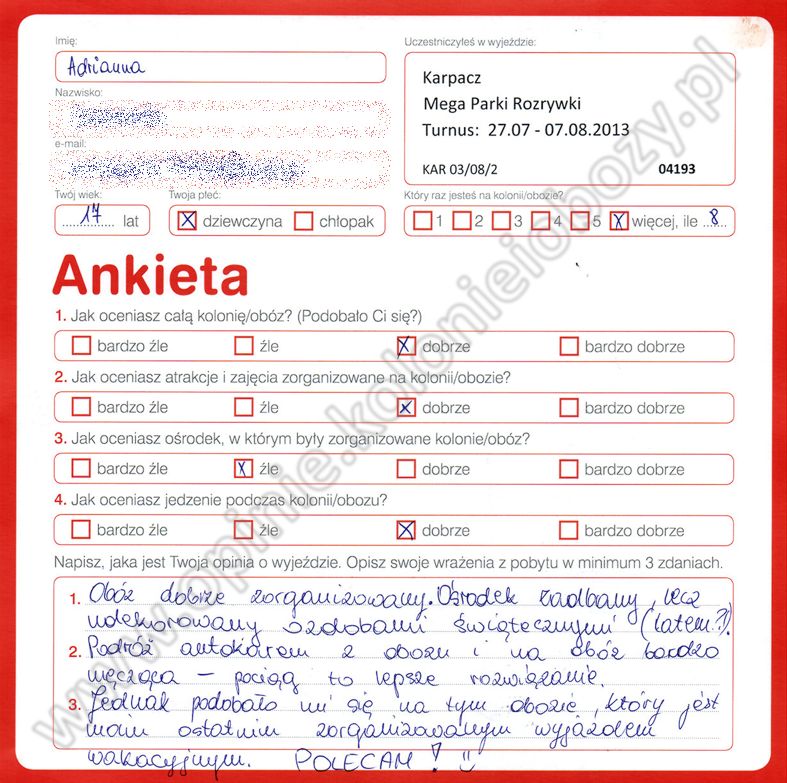 Imię:
Adrianna
Uczestniczyłeś w wyjeździe:
Karpacz
Mega Parki Rozrywki
Turnus: 27.07 - 07.08.2013
KAR 03/08/2 04193
Nazwisko:
e-mail:
Twój wiek:
17 lat
Twoja płeć:
X dziewczyna chłopak
Który raz jesteś na kolonii/obozie?
1 2 3 4 5 X więcej, ile 8
Ankieta
1. Jak oceniasz całą kolonię/obóz? (Podobało Ci się?)
bardzo źle źle X dobrze bardzo dobrze
2. Jak oceniasz atrakcje i zajęcia zorganizowane na kolonii/obozie?
bardzo źle źle X dobrze bardzo dobrze
3. Jak oceniasz ośrodek, w którym były zorganizowane kolonie/obóz?
bardzo źle X źle dobrze bardzo dobrze
4. Jak oceniasz jedzenie podczas kolonii/obozu?
bardzo źle źle X dobrze bardzo dobrze
Napisz, jaka jest Twoja opinia o wyjeździe. Opisz swoje wrażenia z pobytu w minimum 3 zdaniach.
1. Obóz dobrze zorganizowany. Ośrodek zadbany, lecz
udekorowany ozdobami świątecznymi (latem?).
2. Podróż autokarem z obozu i na obóz bardzo
męcząca – pociąg to lepsze rozwiązanie.
3. Jednak podobało mi się na tym obozie, który jest
moim ostatnim zorganizowanym wyjazdem
wakacyjnym. POLECAM! :)
www.opinie.kolonieiobozy.pl